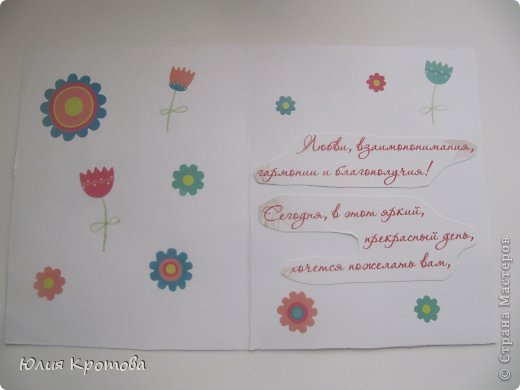 Любви, взаимопонимания,
гармонии и благополучия!
Сегодня, в этот яркий,
прекрасный день,
хочется пожелать вам,
Юлия Кротова
© Страна Мастеров